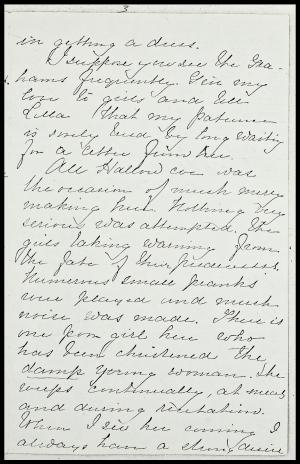 3
in getting a dress.
I suppose you see the Gra-
hams frequently. Give my
love to girls and tell
Lilla that my patience
is sorely tried by long waiting
for a letter from her.
All Hallow eve was
the occasion of much merry
making here. Nothing very
serious was attempted, the
girls taking warning from
the fate of their predecessors.
Numerous small pranks
were played and much
noise was made. There is
one poor girl here who
has been christened the
damp young woman. She
weeps continually, at meals
and during recitation.
When I see her coming I
always have a strong desire